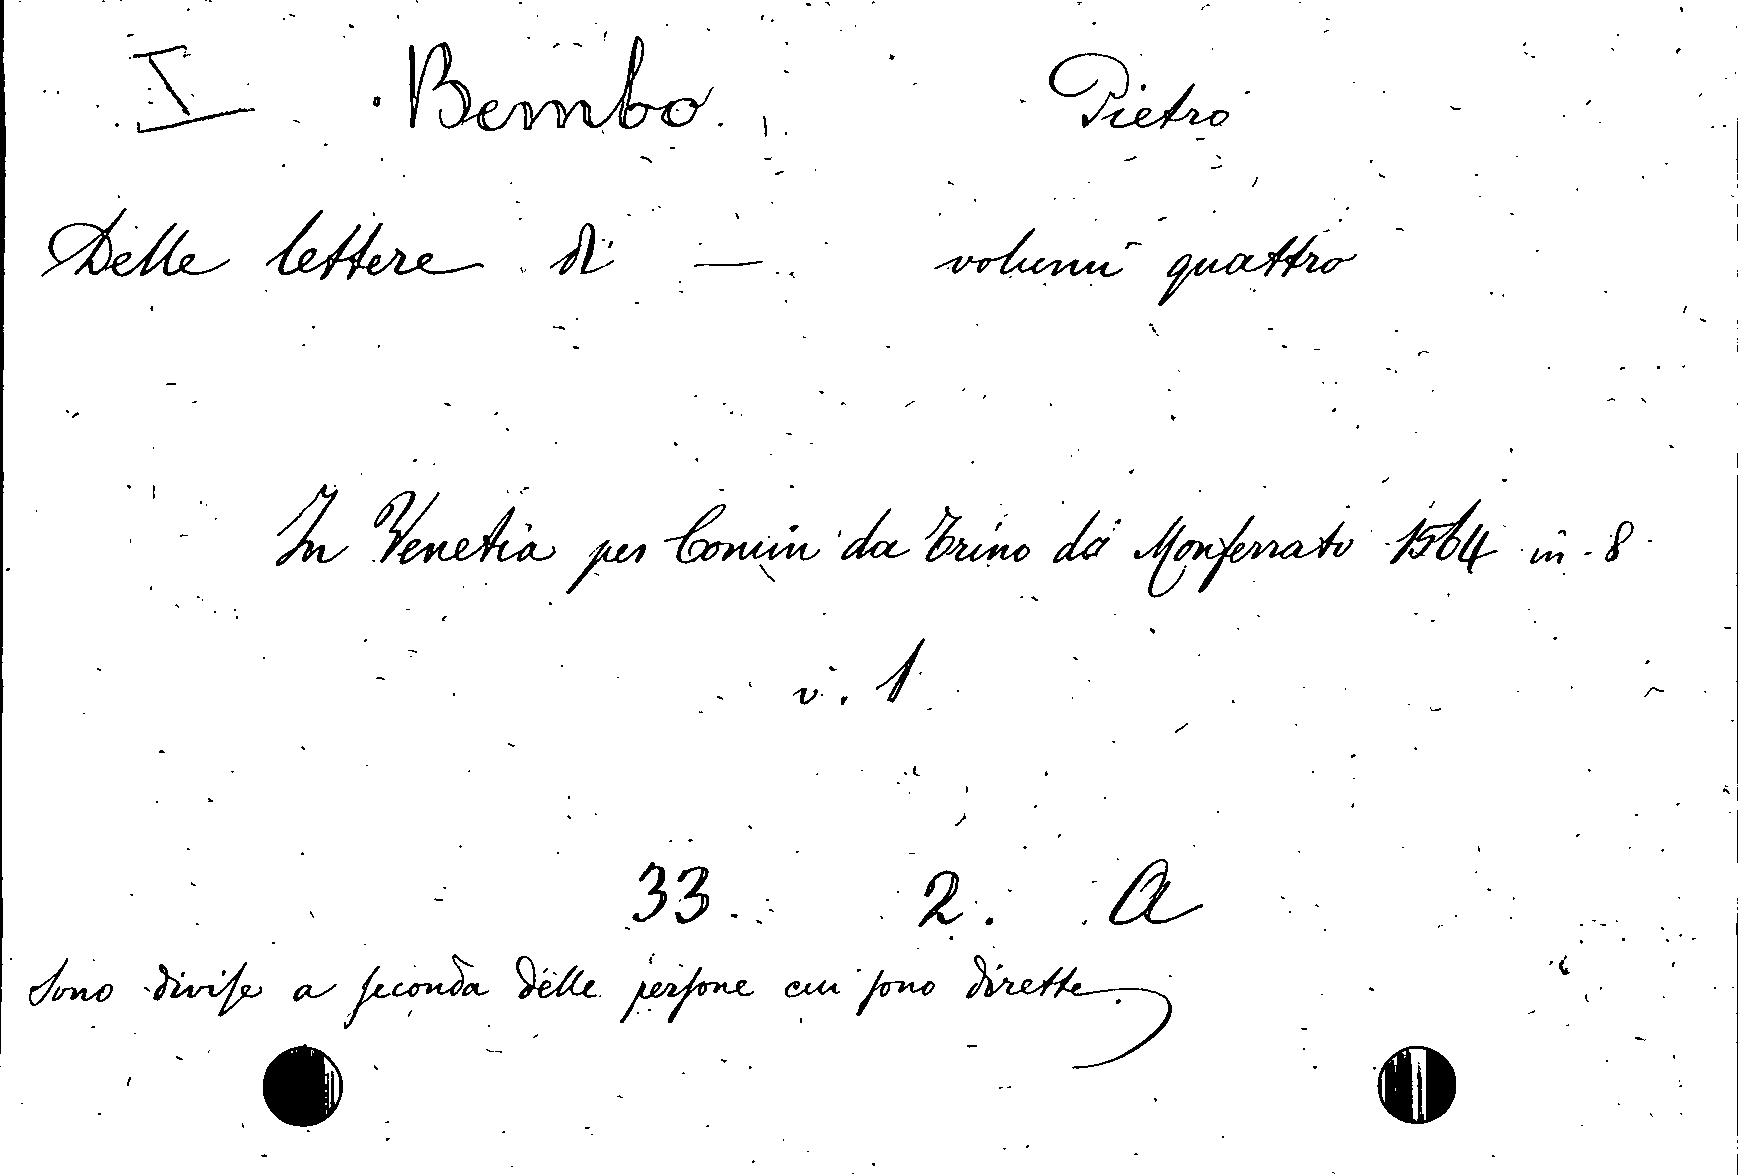 I Bembo Pietro
Delle lettere di — volumi quattro
In Venetia per Comin da Trino da Monferrato 1564 in 8
v. 1
33. 2. A
Sono divise a seconda delle persone cui sono dirette